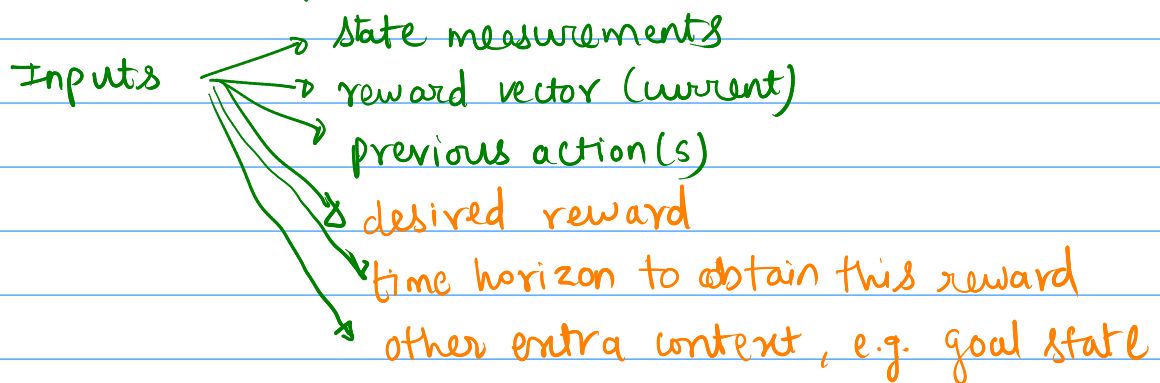 state measurements
Inputs
reward vector (current)
previous action(s)
desired reward
time horizon to obtain this reward
other extra context, e.g. goal state